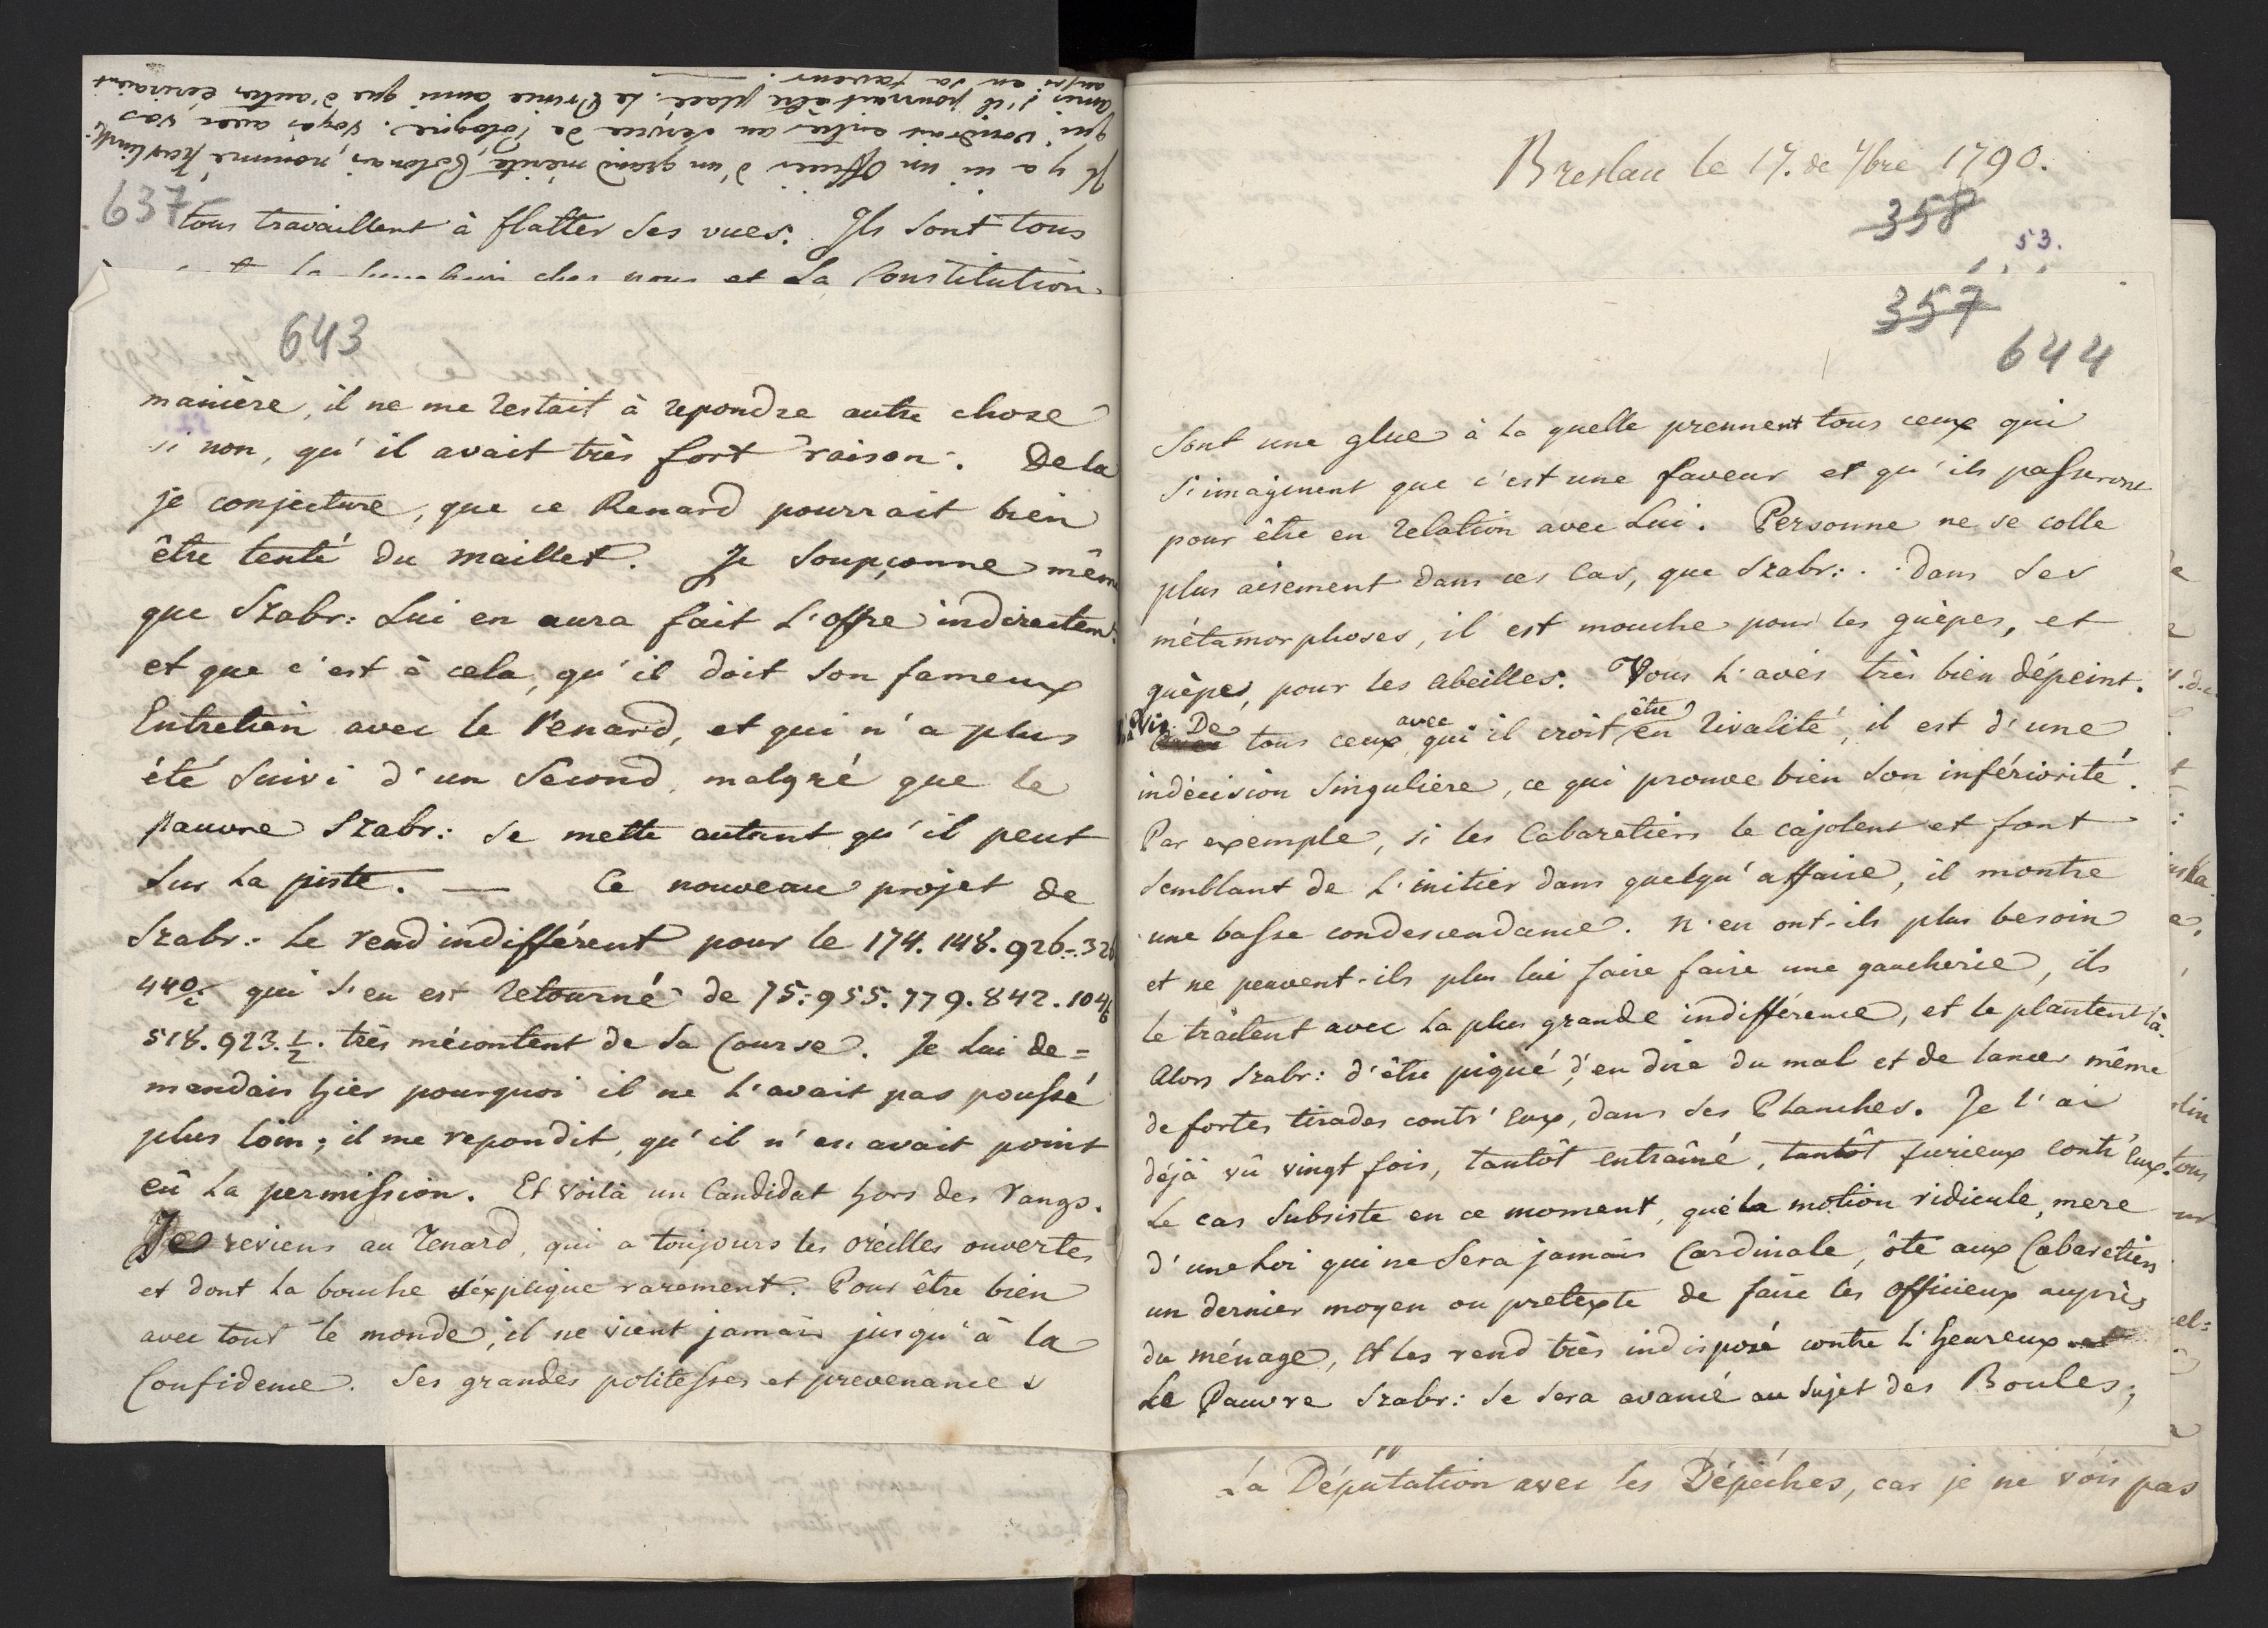 Il y a ici un Officier d'un grand mérite, Polonais, nommé
qui voudrais entrer au sérvice de Pologne. Voyés avec vos
amis s'il pourrait être placé. Le Prince ainsi que d'autres écriraient
aussi en sa faveur.
637
tous travaillent à flatter ses vues. Ils sont tous
chez nous et la Constitution
643
manière, il ne me restait à repondre autre chose
si non, qu'il avait très fort raison. De la
je conjecture, que ce Renard pourrait bien
être tenté du maillet. Je soupçonne même
que Szabr: lui en aura fait l'offre indirectemt:
et que c'est à cela, qu'il doit son fameux
Entretien avec le Renard, et qui n'a plus
été suivi d'un Second, malgré que le
pauvre Szabr: se mette autant qu'il peut
sur la piste. — Ce nouveau projet de
Szabr: le rend indifférent pour le 174. 148. 926. 326
440 qui s'en est retourné de 75. 955. 779. 842. 104
518. 923. 1/2. très mécontent de sa Course. Je lui de=
mandais hier pourquoi il ne l'avait pas poussé
plus loin; il me repondit, qu'il n'en avait point
eû la permission. Et voilà un Candidat hors des rangs.
Je reviens au renard, qui a toujours les oréilles ouvertes
et dont la bouche s'éxplique rarement. Pour être bien
avec tout le monde, il ne vient jamais jusqu'à la
Confidence. Ses grandes politesses et prevenances
Breslau le 17. de 7bre 1790.
358
53.
357
644
sont une glue à la quelle prennent tous ceux qui
s'imaginent que c'est une faveur et qu'ils passeront
pour être en relation avec Lui. Personne ne se colle
plus aisement dans ces Cas, que Szabr: . dans ses
métamorphoses, il est mouche pour les guèpes, et
guèpes, pour les abeilles. Vous l'avés très bien dépeint.
Vis De tous ceux avec qui il croit être en rivalité, il est d'une
indécision singulière, ce qui prouve bien son infériorité.
Par exemple, si les Cabaretiers le cajolent et font
semblant de l'initier dans quelqu'affaire, il montre
une basse condescendance. N'en ont-ils plus besoin
et ne peuvent-ils plus lui faire faire une gaucherie, ils
le traitent avec la plus grande indifférence, et le plantent là.
Alors Szabr: d'être piqué, d'en dire du mal et de lancer même
de fortes tirades contr'eux, dans ses Planches. Je l'ai
déjà vû vingt fois, tantôt entraîné, tantôt furieux contr'eux.
Le cas subsiste en ce moment, que la motion ridicule, mere
d'une Loi qui ne sera jamais Cardinale, ôte aux Cabaretiers
un dernier moyen ou pretexte de faire les officieux auprès
du ménage, et les rend très indisposé contre l'heureux
Le Pauvre Szabr: se sera avancé au sujet des Boules,
La Députation avec les Dépéches, car je ne vois pas